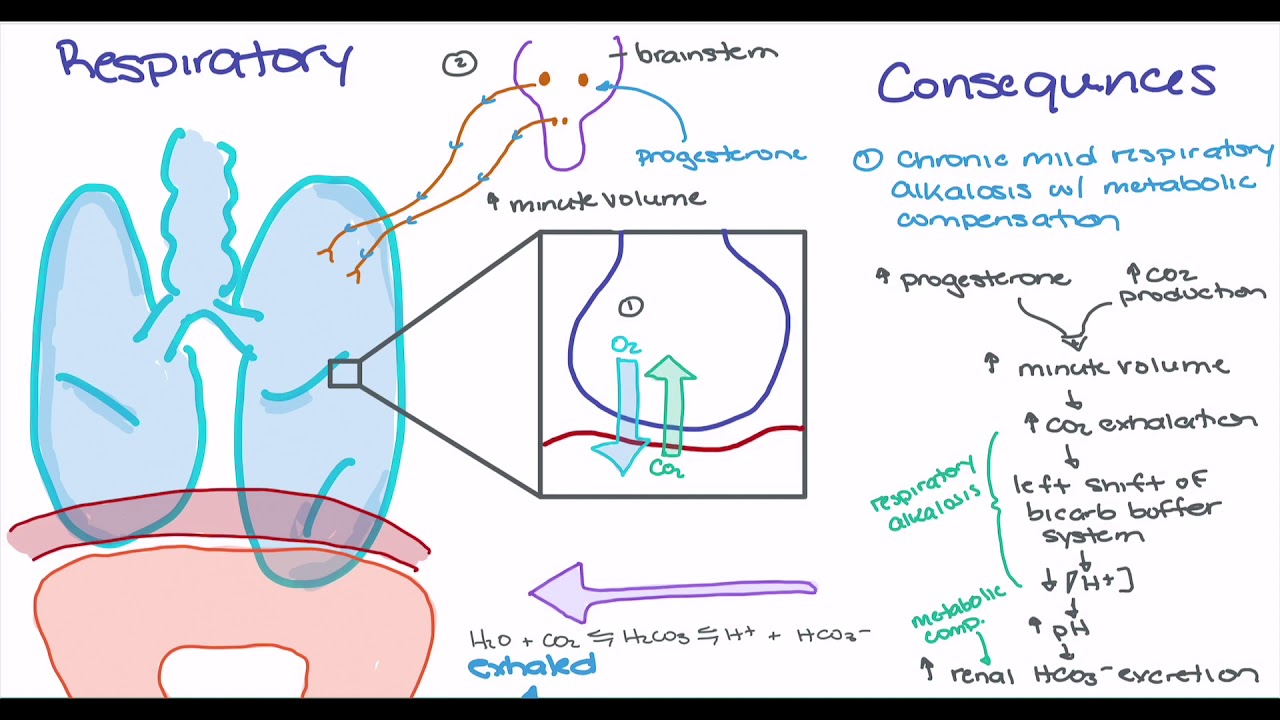 Respiratory
②
brainstem
progesterone
↑ minute volume
①
O2
CO2
H2O + CO2 ⇋ H2CO3 ⇋ H+ + HCO3-
exhaled
Consequnces
① chronic mild respiratory
alkalosis w/ metabolic
compensation
↑ progesterone
↑ CO2
production
↑ minute volume
↓
↑ CO2 exhalation
↓
left shift of
bicarb buffer
system
↓
↓ [H+]
↓
↑ pH
↓
↑ renal HCO3- excretion
respiratory
alkalosis
metabolic
comp.